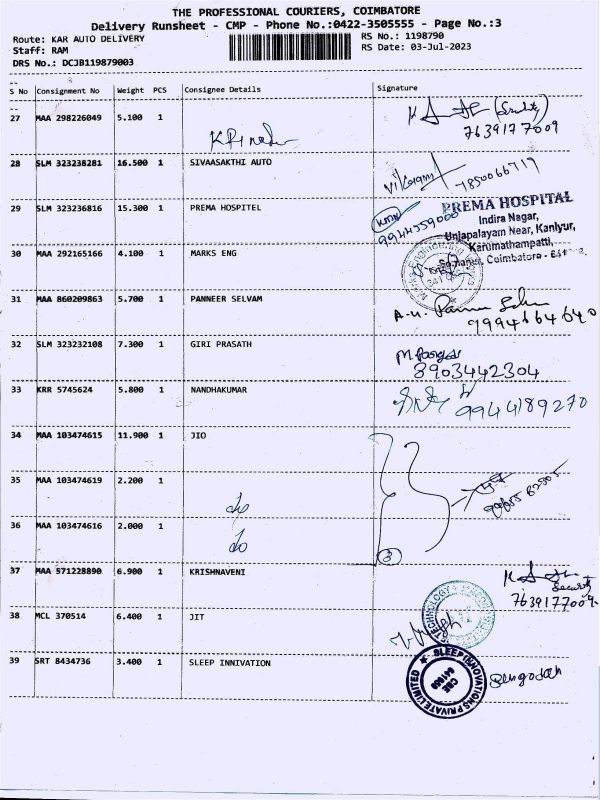 THE PROFESSIONAL COURIERS, COIMBATORE
Delivery Runsheet - CMP - Phone No.:0422-3505555 - Page No.:3
Route: KAR AUTO DELIVERY RS No.: 1198790
Staff: RAM RS Date: 03-Jul-2023
DRS No.: DCJB119879003
S No Consignment No Weight PCS Consignee Details Signature
27 MAA 298226049 5.100 1
7639177009
28 SLM 323238281 16.500 1 SIVAASAKTHI AUTO
29 SLM 323236816 15.300 1 PREMA HOSPITEL
PREMA HOSPITAL
Indira Nagar,
Unjapalayam Near, Kaniyur,
Karumathampatti,
Coimbatore
30 MAA 292165166 4.100 1 MARKS ENG
31 MAA 860209863 5.700 1 PANNEER SELVAM
9994664640
32 SLM 323232108 7.300 1 GIRI PRASATH
8903442304
33 KRR 5745624 5.800 1 NANDHAKUMAR
9944189270
34 MAA 103474615 11.900 1 JIO
35 MAA 103474619 2.200 1
do
36 MAA 103474616 2.000 1
do
3
37 MAA 571228890 6.900 1 KRISHNAVENI
Security
7639177009
38 MCL 370514 6.400 1 JIT
39 SRT 8434736 3.400 1 SLEEP INNIVATION
SLEEP INNOVATIONS PRIVATE LIMITED
CBE